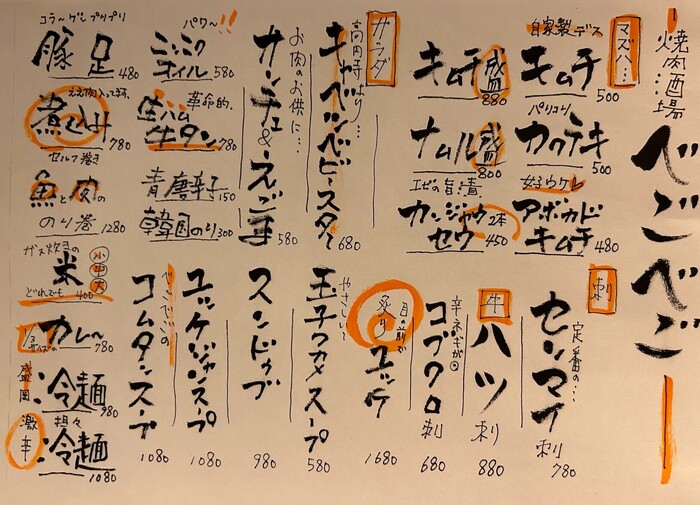 焼肉酒場
べごべご
マズハ…
自家製デス
キムチ
500
パリコリ
カクテキ
500
女子ウケ
アボカド
キムチ
480
キムチ盛
880
ナムル盛
800
エビの旨漬
カンジャン
セウ
2本
450
サラダ
高円寺より…
キャベツベビースター
680
お肉のお供に…
サンチュ&えごま
580
パワ〜!!
にんにく
オイル 580
革命的、
生ハム
牛タン
780
青唐辛子
150
韓国のり300
コラーゲンプリプリ
豚足
480
ええ肉入ってます、
煮込み
780
セルフ巻き
魚と肉の
のり巻 1280
ガス炊きの
米
小中大
どれでも 400
カレ〜
780
盛岡
冷麺
980
激辛
担々
冷麺
1080
刺
定番の…
センマイ
刺
780
牛
ハツ
刺
880
辛ネギが◎
コブクロ
刺
680
目の前で
炙り
ユッケ
1680
やさしい〜
玉子ワカメスープ
580
スンドゥブ
980
ユッケジャンスープ
1080
べごべごの
コムタンスープ
1080